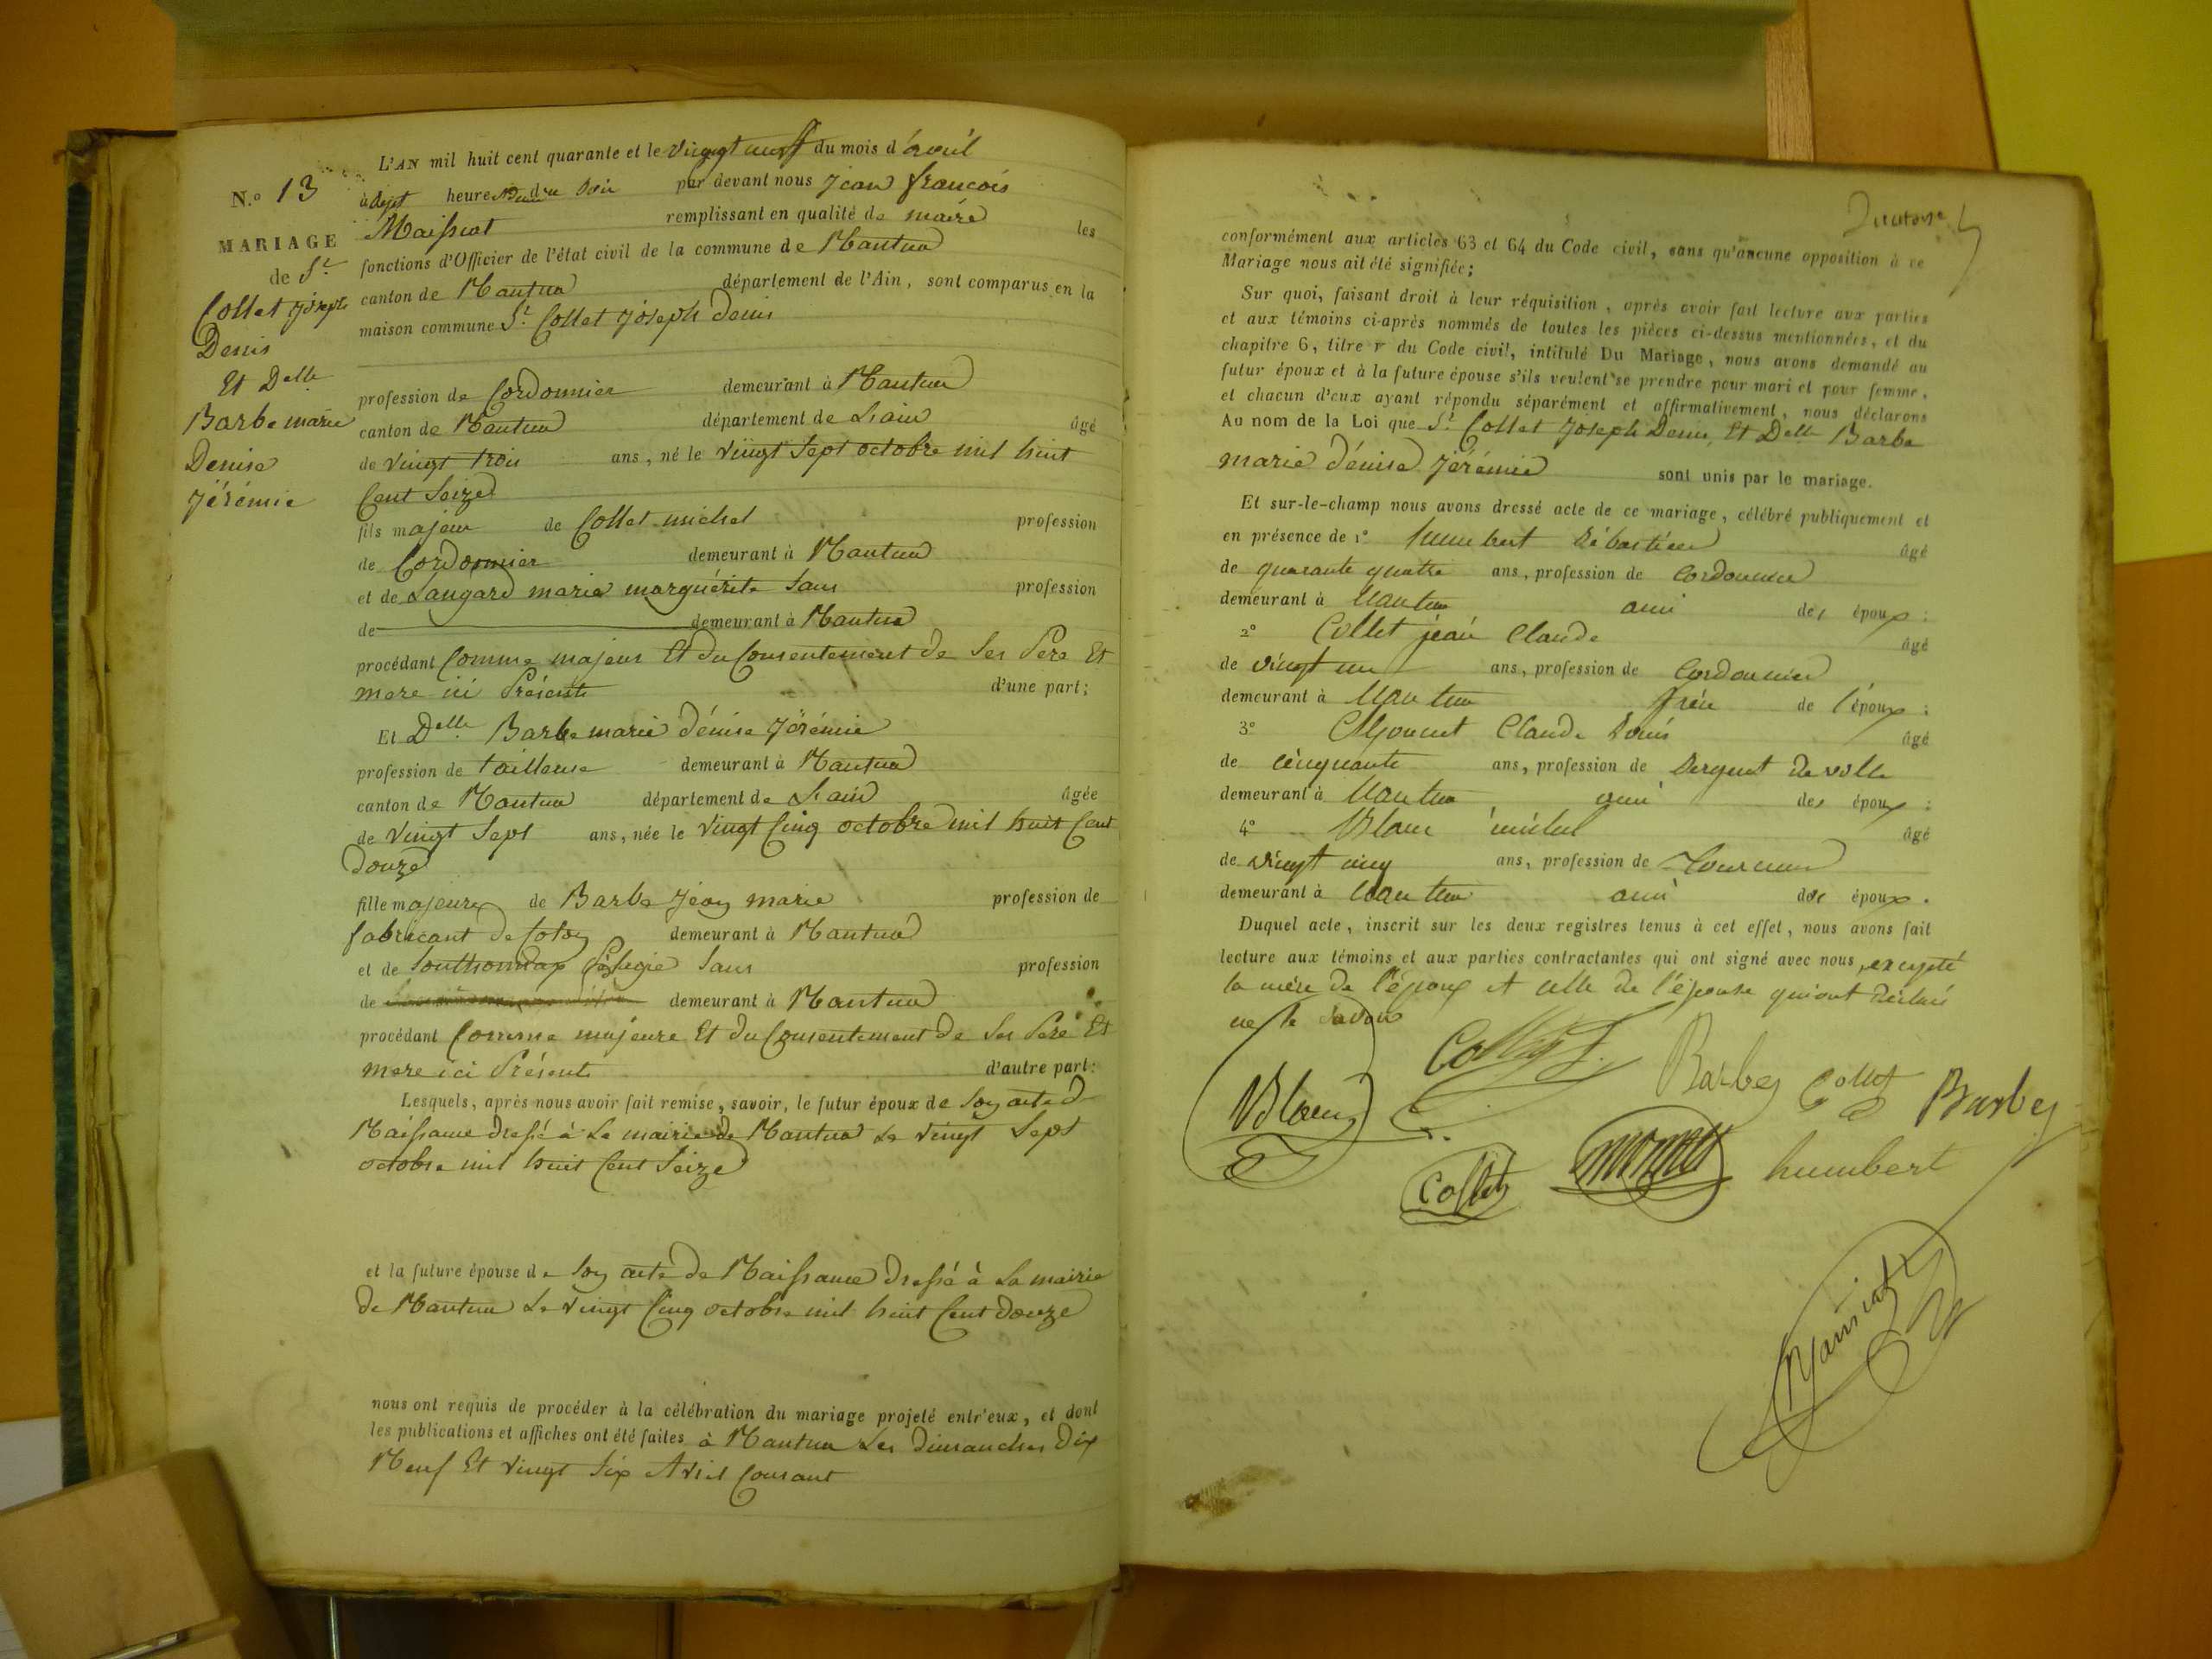 N.° 13
MARIAGE
de S.r
Collet joseph
Denis
Et Delle
Barbe marie
Denise
jérémie
L'AN mil huit cent quarante et le vingt neuf du mois d'avril
à sept heures du soir par devant nous jean françois
Maissiat remplissant en qualité de maire les
fonctions d'Officier de l'état civil de la commune de Nantua
canton de Nantua département de l'Ain, sont comparus en la
maison commune S.r Collet joseph denis
profession de Cordonnier demeurant à Nantua
canton de Nantua département de L'ain âgé
de vingt trois ans, né le vingt sept octobre mil huit
Cent Seize
fils majeur de Collet michel profession
de Cordonnier demeurant à Nantua
et de Laugard marie marguérite Sans profession
de demeurant à Nantua
procédant Comme majeur Et du Consentement de Ses Pere Et
mere ici Présents d'une part;
Et Delle Barbe marie dénise jérémie
profession de tailleuse demeurant à Nantua
canton de Nantua département de L'ain âgée
de vingt Sept ans, née le vingt Cinq octobre mil huit Cent
douze
fille majeure de Barbe jean marie profession de
fabricant de Coton demeurant à Nantua
et de Southonnax Pélagie Sans profession
de demeurant à Nantua
procédant Comme majeure Et du Consentement de Ses Pere Et
mere ici Présents d'autre part:
Lesquels, après nous avoir fait remise, savoir, le futur époux de Son acte de
Naissance dressé à La mairie de Nantua Le vingt Sept
octobre mil huit Cent Seize
et la future épouse de Son acte de Naissance dressé à La mairie
de Nantua Le vingt Cinq octobre mil huit Cent douze
nous ont requis de procéder à la célébration du mariage projeté entr'eux, et dont
les publications et affiches ont été faites à Nantua Les dimanches dix
Neuf Et vingt Six Avril Courant
conformément aux articles 63 et 64 du Code civil, sans qu'aucune opposition à ce
Mariage nous ait été signifiée;
Sur quoi, faisant droit à leur réquisition, après avoir fait lecture aux parties
et aux témoins ci-après nommés de toutes les pièces ci-dessus mentionnées, et du
chapitre 6, titre v du Code civil, intitulé Du Mariage, nous avons demandé au
futur époux et à la future épouse s'ils veulent se prendre pour mari et pour femme,
et chacun d'eux ayant répondu séparément et affirmativement, nous déclarons
Au nom de la Loi que S.r Collet joseph Denis, Et Delle Barbe
marie dénise jérémie sont unis par le mariage.
Et sur-le-champ nous avons dressé acte de ce mariage, célébré publiquement et
en présence de 1° humbert Sébastien âgé
de quarante quatre ans, profession de Cordonnier
demeurant à Nantua ami des époux;
2° Collet jean Claude âgé
de vingt un ans, profession de Cordonnier
demeurant à Nantua frère de l'époux;
3° Claude Louis âgé
de cinquante ans, profession de Sergent de ville
demeurant à Nantua ami des époux;
4° Blanc michel âgé
de vingt cinq ans, profession de Tourneur
demeurant à Nantua ami des époux.
Duquel acte, inscrit sur les deux registres tenus à cet effet, nous avons fait
lecture aux témoins et aux parties contractantes qui ont signé avec nous, excepté
la mère de l'époux et celle de l'épouse qui ont déclaré
ne le savoir
Collet
Barbe
Collet
Barbe
Blanc
Collet
humbert
Maissiat